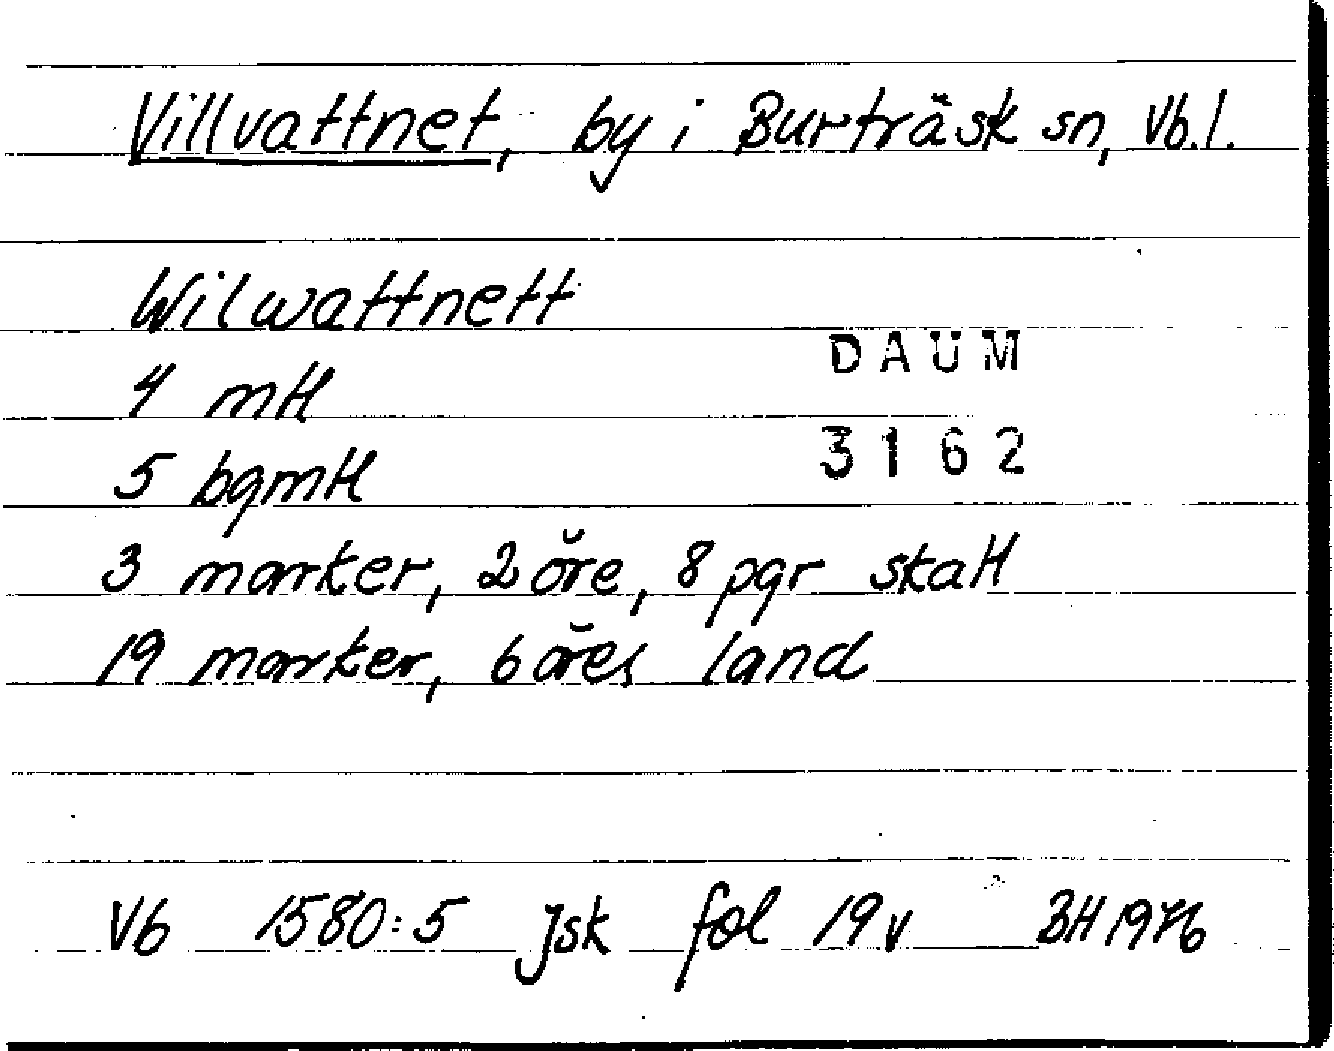 Villvattnet, by i Burträsk sn, Vb.l.
Wilwattnett
DAUM
4 mtl
3162
5 bgmtl
3 marker, 2 öre, 8 pgr skatt
19 marker, 6 öres land
Vb 1580:5 Jsk fol 19v BH 1976